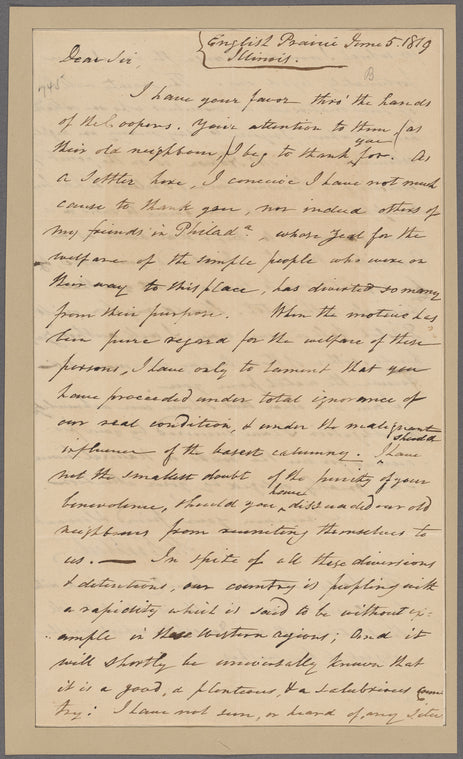 English Prairie June 5. 1819
Illinois.
Dear Sir,
B
745
I have your favor thro' the hands
of the Coopers. Your attention to them (as
their old neighbour,) I beg to thank you for. As
a settler here, I conceive I have not much
cause to thank you, nor indeed others of
my friends in Philada. whose zeal for the
welfare of the simple people who were on
their way to this place, has diverted so many
from their purpose. When the motive has
been pure regard for the welfare of these
persons, I have only to lament that you
have proceeded under total ignorance of
our real condition, & under the malignant
influence of the basest calumny. I should have
not the smallest doubt of the purity of your
benevolence, should you have dissuaded our old
neighbours from reuniting themselves to
us. — In spite of all these diversions
& detentions, our country is peopling with
a rapidity which is said to be without ex-
ample in these Western regions; and it
will shortly be universally known that
it is a good, a plenteous, & a salubrious Coun
try: I have not seen, or heard of, any